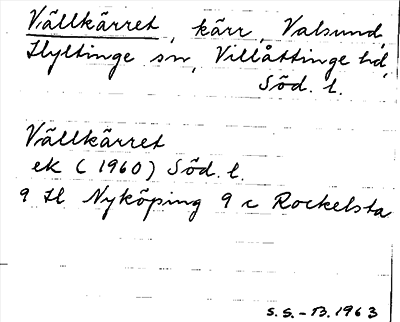 Vällkärret, kärr, Valsund,
Flyttinge sn, Villåttinge hd,
Söd. l.
Vällkärret
ek (1960) Söd. l.
9 H Nyköping 9 c Rockelsta
S.S.-B. 1963